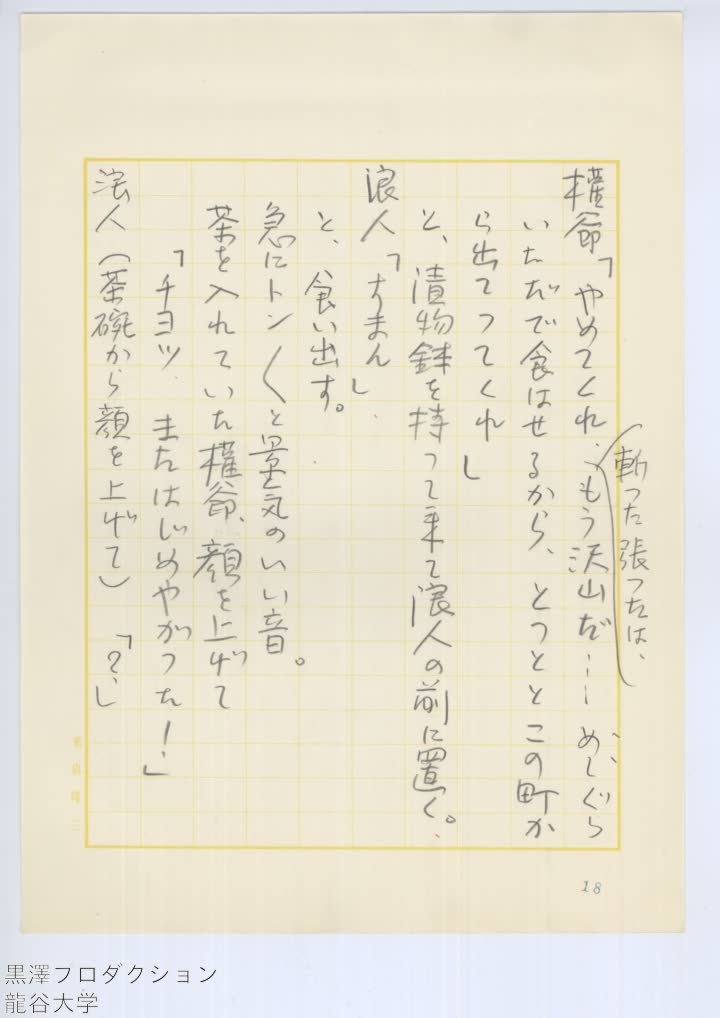 斬つた張つたは、
権爺「やめてくれ、もう沢山だ……めしぐら
いたゞで食はせるから、とつととこの町か
ら出てつてくれ」
と、漬物鉢を持つて来て浪人の前に置く。
浪人「すまん」
と、食い出す。
急にトン〱と景気のいい音。
茶を入れていた権爺、顔を上げて
「チヨツ またはじめやがつた！」
浪人（茶碗から顔を上げて）「?」
18
黒澤プロダクション
龍谷大学